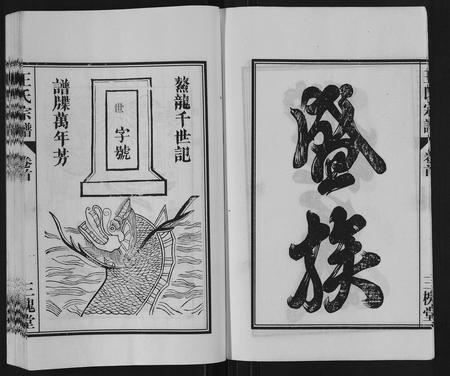 鰲龍千世記
世
字號
譜牒萬年芳
王氏宗譜
卷首
三槐堂
王氏宗譜
卷首
三槐堂
族